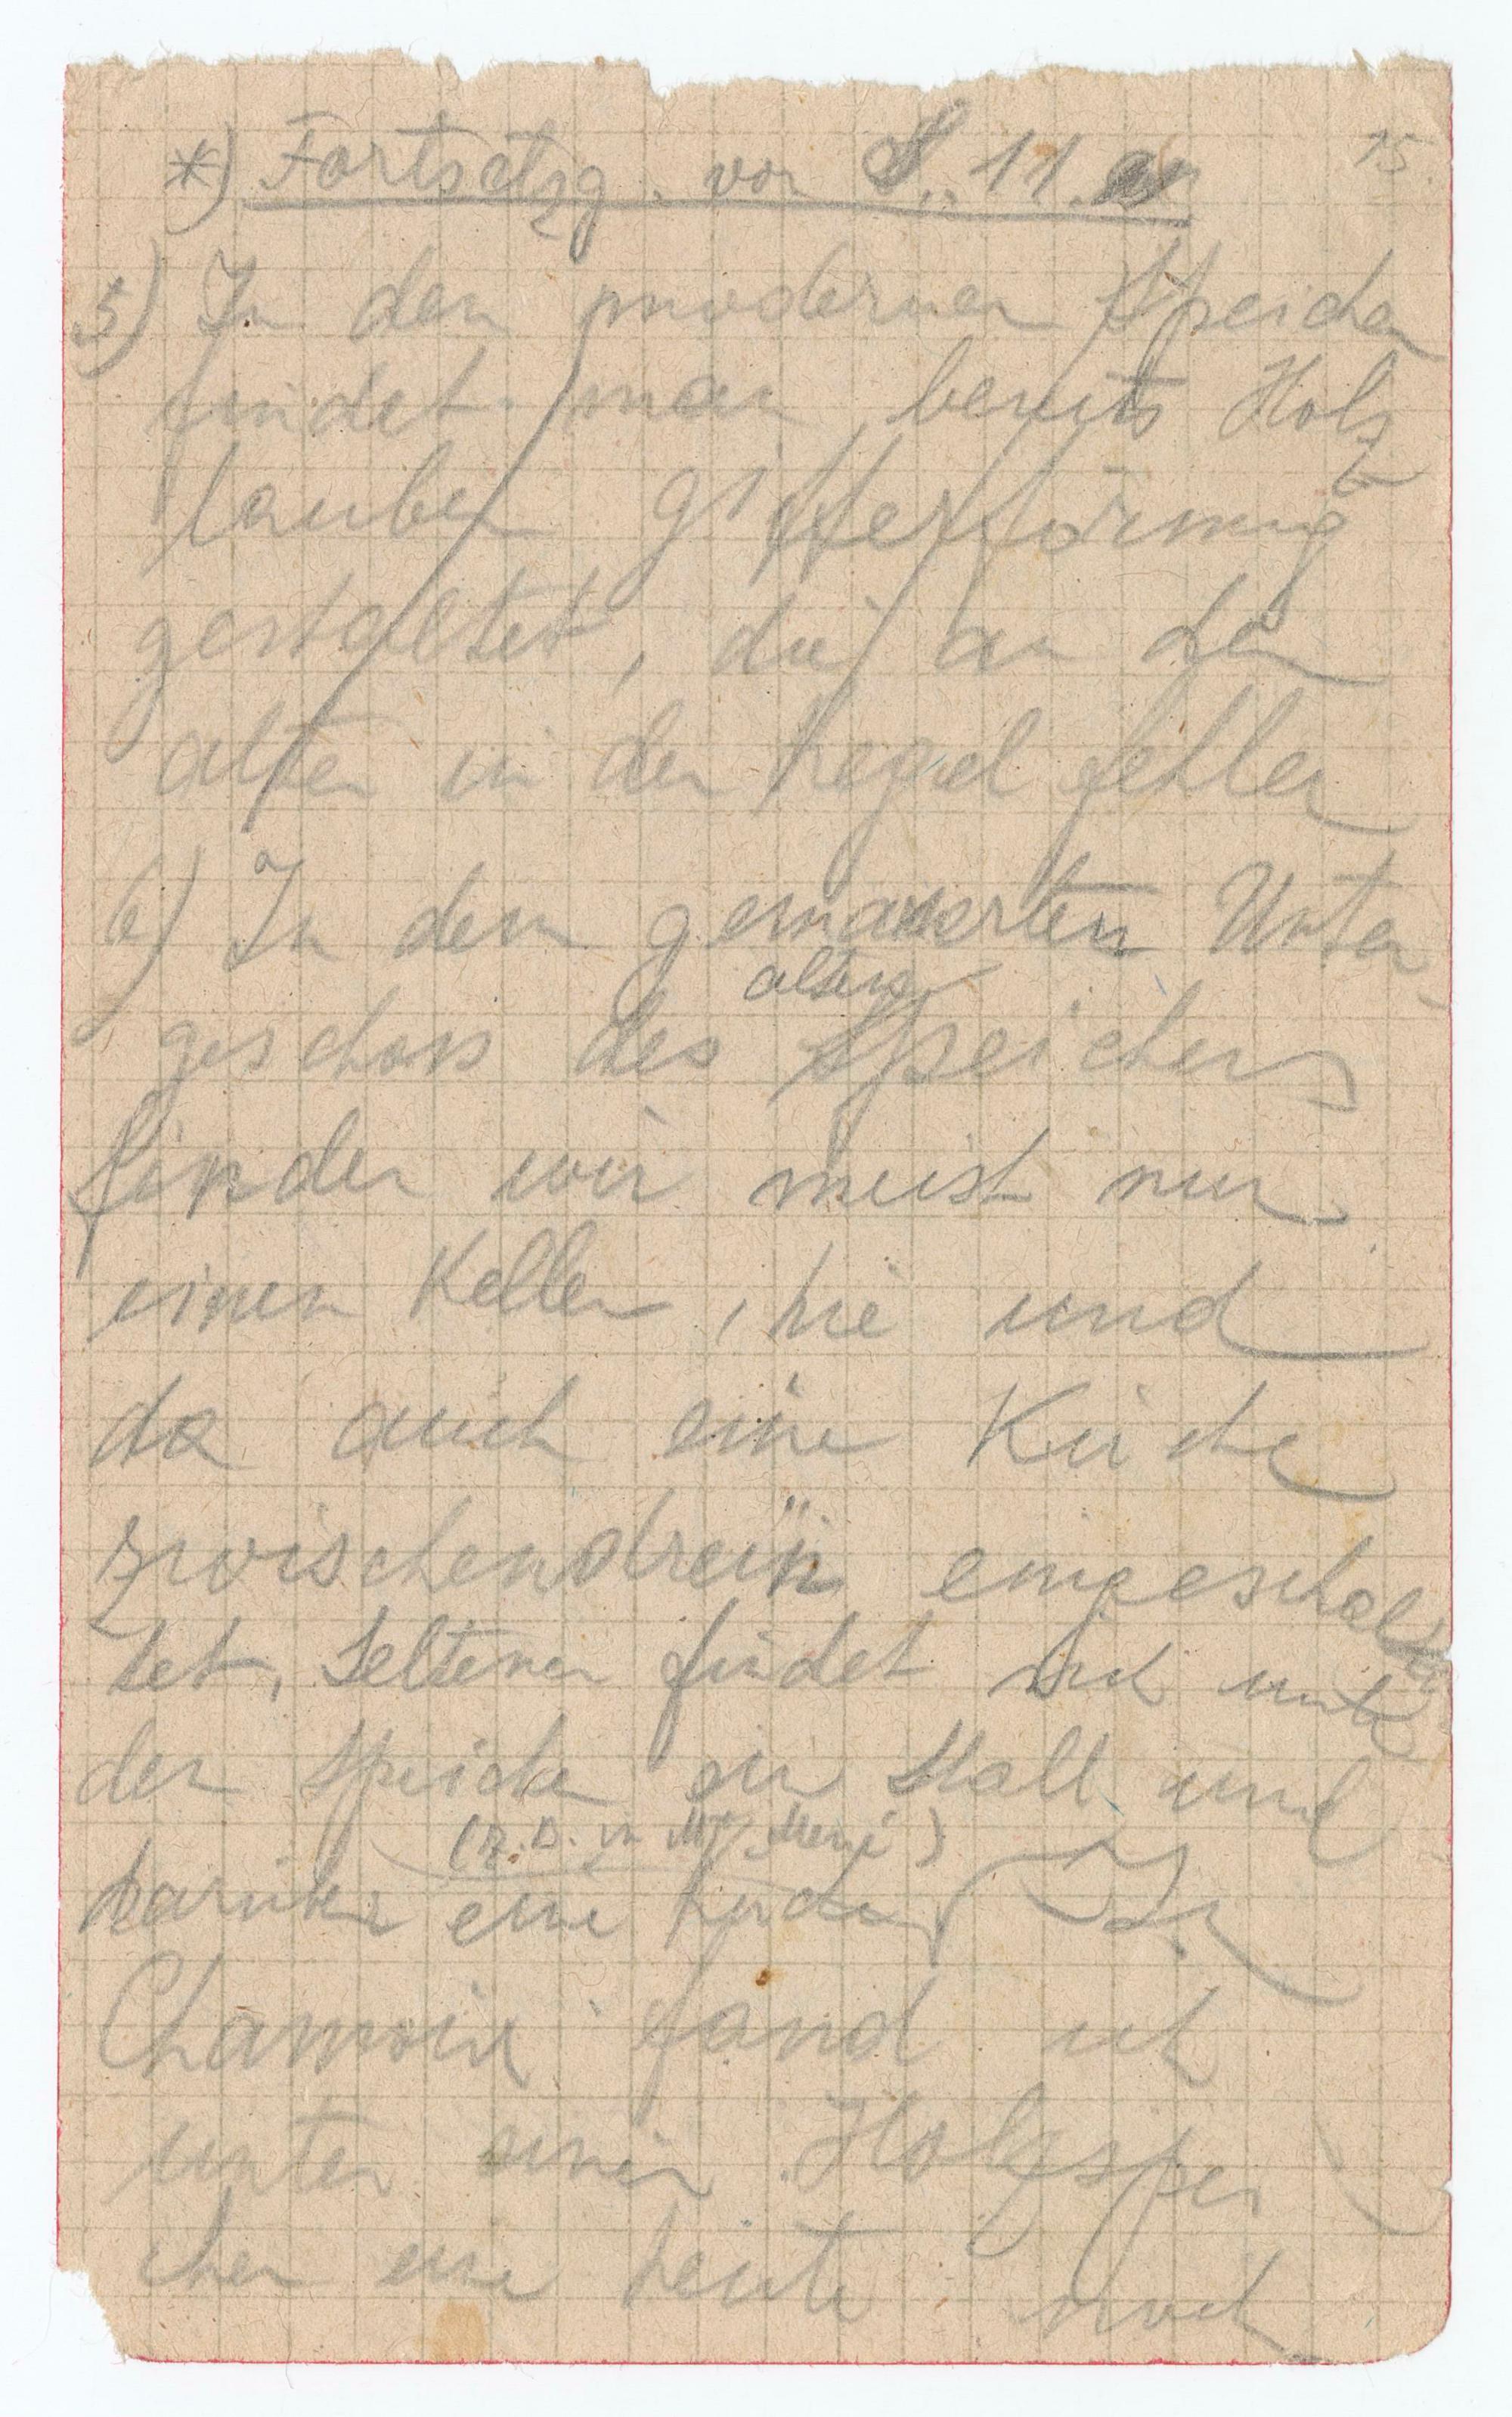 *) Fortsetzg. von S. 11. an
15.
5) In den modernen Speichern
findet man bereits Holz
lauben gitterförmig
gestaltet, die an den
alten in der Regel fehlen
6) In dem gemauerten Unter
alten
geschoss des Speichers
finden wir meist nur
einen Keller, hie und
da auch eine Küche
zwischendrein eingeschal
tet. Seltener findet sich unter
dem Speicher ein Stall und
(z.B. in
darüber eine Küche. In
Chamoix fand ich
unter einem Holzspei
cher eine heute noch